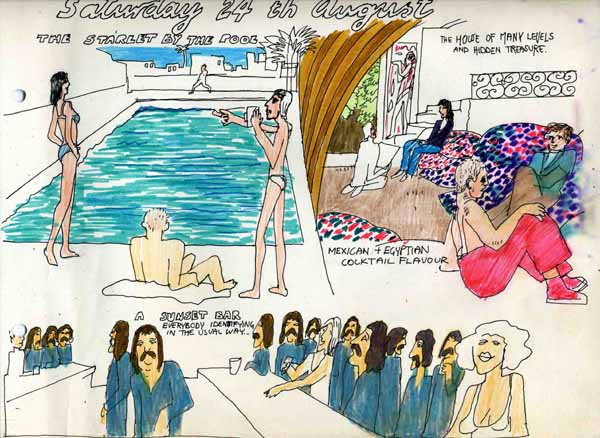 Saturday 24 th August
THE STARLET BY THE POOL
THE HOUSE OF MANY LEVELS
AND HIDDEN TREASURE.
MEXICAN + EGYPTIAN
COCKTAIL FLAVOUR
A SUNSET BAR
EVERYBODY IDENTIFYING
IN THE USUAL WAY..